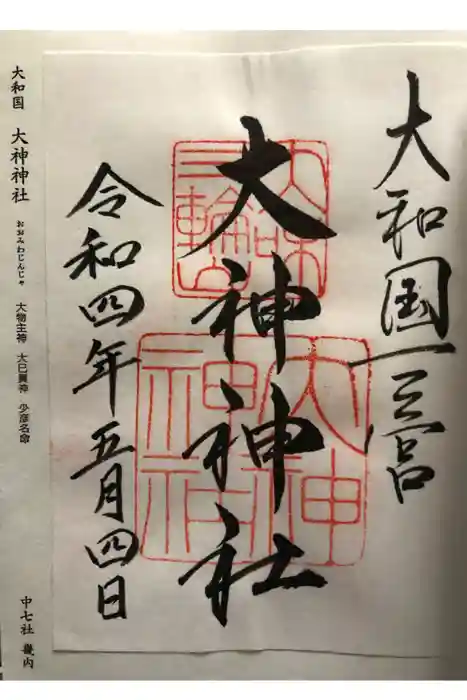 大和国一之宮
大神神社
令和四年五月四日
三輪山
大神神社
大和国 大神神社 おおみわじんじゃ 大物主神 大己貴神 少彦名命 中七社 畿内